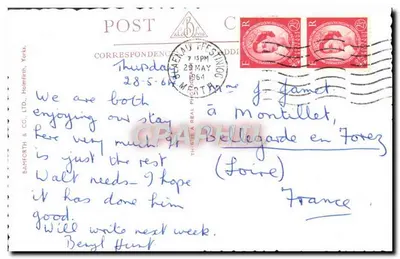 POST
CORRESPONDENCE
BAMFORTH & CO., LTD., Holmfirth, Yorks.
BLAENAU FFESTINIOG
7 15PM
28 MAY
1964
E R
E R
Thursday
28-5-64
We are both
enjoying our stay
here very much. It
is just the rest
Walt needs - I hope
it has done him
good.
Will write next week.
Beryl Hunt
Mme G. Jamet
à Montillet,
Bellegarde en Forez
(Loire)
France.